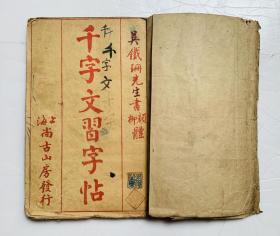 吳鐵珊先生書
柳體
千字文
千字文習字帖
上海
尚古山房發行